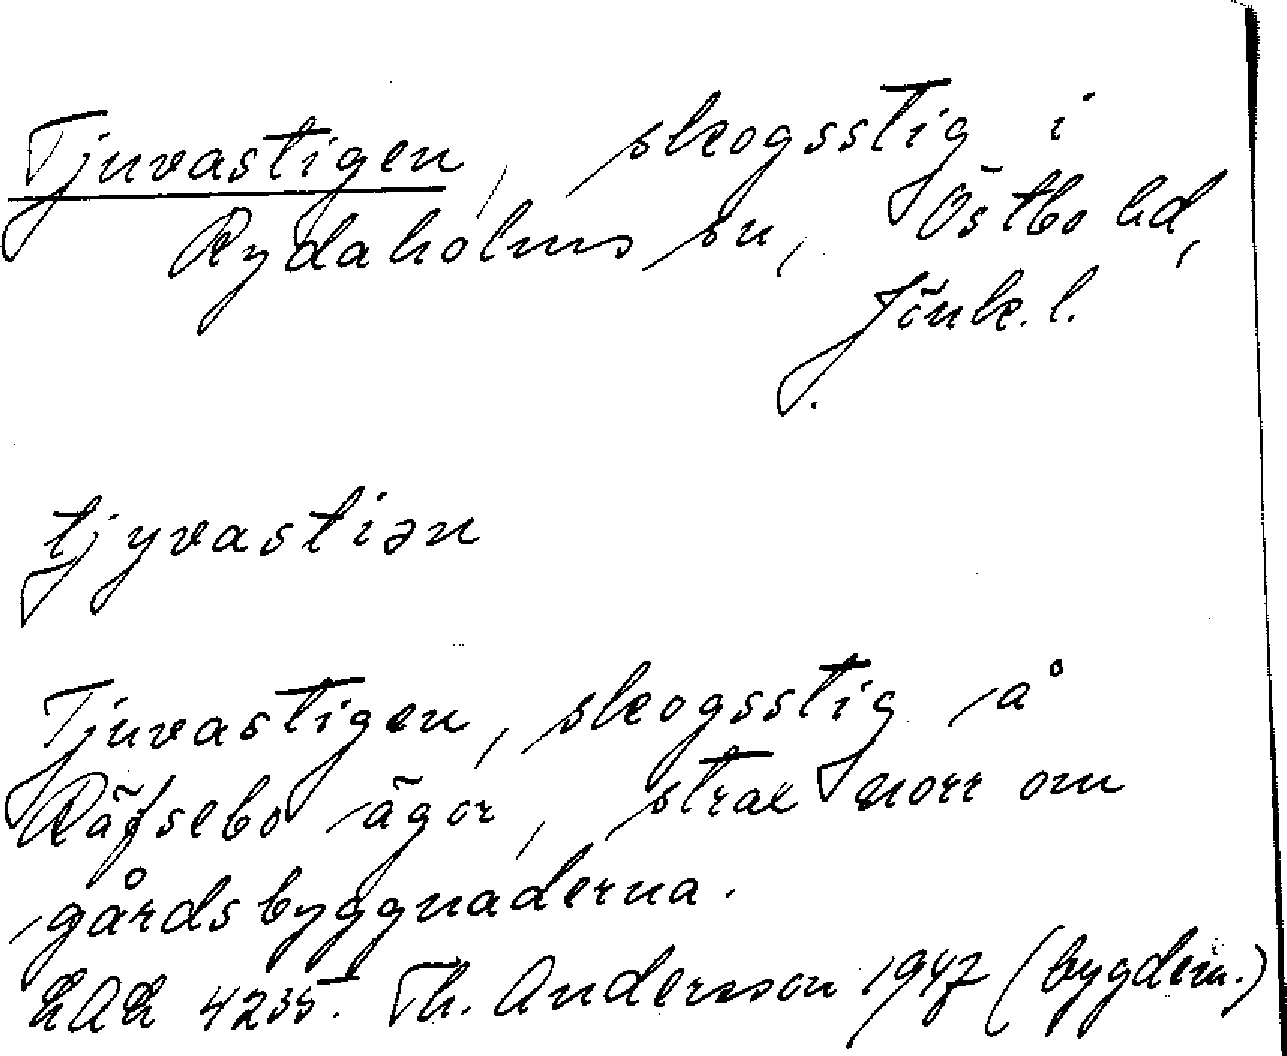 Tjuvastigen, skogsstig i
Rydaholms sn, Östbo hd,
Jönk. l.
tjyvastiən
Tjuvastigen, skogsstig å
Räfsebo ägor, strax norr om
gårdsbyggnaderna.
LAL 4235. Th. Andersson 1947 (bygdem.)